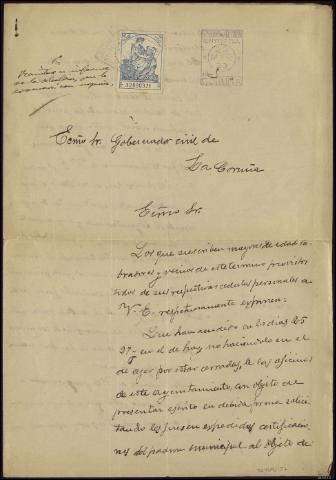 Ecmo Sr. Gobernador civil de
La Coruña
Ecmo Sr.
Los que suscriben mayores de edad la-
bradores y vecinos de este termino provistos
todos de sus respectivas cedulas personales a
V. E. respetuosamente exponen:
Que han acudido en los dias 25
27 en el de hoy no haciendolo en el
de ayer por estar cerradas, a las oficinas
de este ayuntamiento con objeto de
presentar escrito en debida forma solici-
tando les fuesen expedidas certificacio-
nes del padron municipal al objeto de